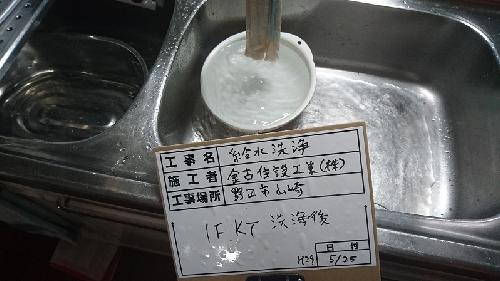 工事名 給水洗浄
施工者 金古住設工業(株)
工事場所 野田市山崎
1F KT 洗浄後
日付
H29 5/25